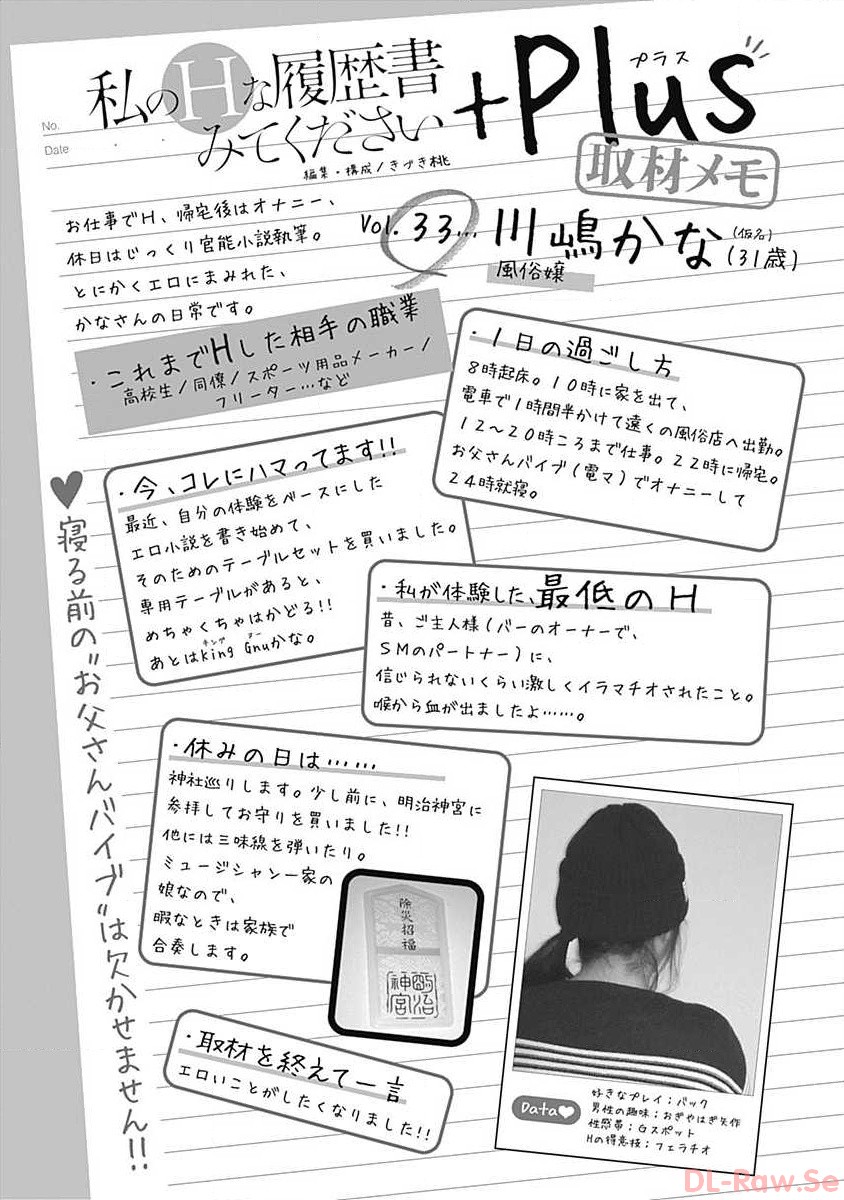 No.
Date
私のHな履歴書
みてください
+Plus
プラス
編集・構成/きづき桃
取材メモ
お仕事でH、帰宅後はオナニー、
休日はじっくり官能小説執筆。
とにかくエロにまみれた、
かなさんの日常です。
Vol.33…
川嶋かな(仮名)(31歳)
風俗嬢
・これまでHした相手の職業
高校生/同僚/スポーツ用品メーカー/
フリーター…など
・1日の過ごし方
8時起床。10時に家を出て、
電車で1時間半かけて遠くの風俗店へ出勤。
12〜20時ころまで仕事。22時に帰宅。
お父さんバイブ(電マ)でオナニーして
24時就寝。
・今、コレにハマってます!!
最近、自分の体験をベースにした
エロ小説を書き始めて、
そのためのテーブルセットを買いました。
専用テーブルがあると、
めちゃくちゃはかどる!!
キング ヌー
あとはking Gnuかな。
・私が体験した、最低のH
昔、ご主人様(バーのオーナーで、
SMのパートナー)に、
信じられないくらい激しくイラマチオされたこと。
喉から血が出ましたよ……。
♥寝る前の"お父さんバイブ"は欠かせません!!
・休みの日は……
神社巡りします。少し前に、明治神宮に
参拝してお守りを買いました!!
他には三味線を弾いたり。
ミュージシャン一家の
娘なので、
暇なときは家族で
合奏します。
除災招福
明治
神宮
・取材を終えて一言
エロいことがしたくなりました!!
Data♥
好きなプレイ:バック
男性の趣味:おぎやはぎ矢作
性感帯:Gスポット
Hの得意技:フェラチオ
DL-Raw.Se